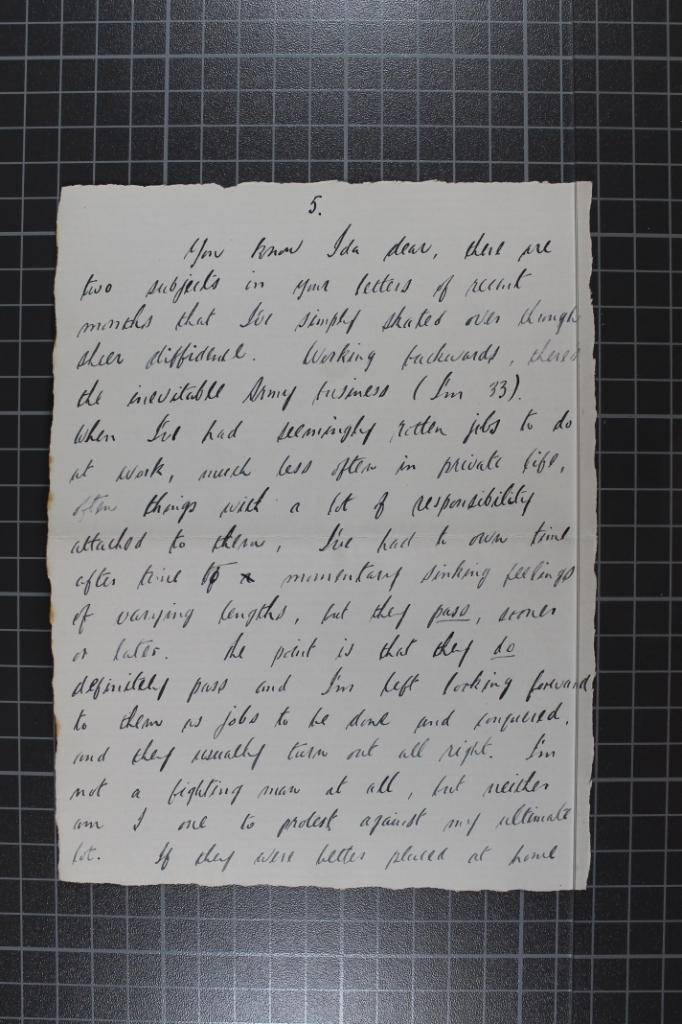 5.
You know Ida dear, there are
two subjects in your letters of recent
months that I've simply skated over through
sheer diffidence. Working backwards, there's
the inevitable Army business (I'm 33).
When I've had seemingly rotten jobs to do
at work, much less often in private life,
often things with a lot of responsibility
attached to them, I've had to own time
after time to momentary sinking feelings
of varying lengths, but they pass, sooner
or later. The point is that they do
definitely pass and I'm left looking forward
to them as jobs to be done and conquered,
and they usually turn out all right. I'm
not a fighting man at all, but neither
am I one to protest against my ultimate
lot. If they were better placed at home